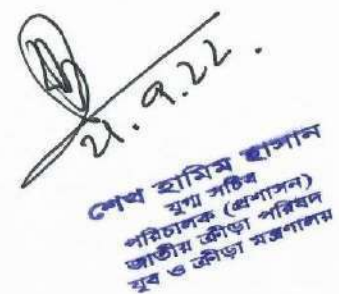 21.9.22.
শেখ হামিম হাসান
যুগ্ম সচিব
পরিচালক (প্রশাসন)
জাতীয় ক্রীড়া পরিষদ
যুব ও ক্রীড়া মন্ত্রণালয়